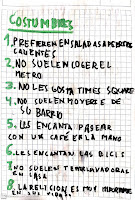 COSTUMBRES
1. PREFIEREN ENSALADAS A PLATOS
CALIENTES
2. NO SUELEN COGER EL
METRO
3. NO LES GUSTA TIMES SQUARE
4. NO SUELEN MOVERSE DE
SU BARRIO
5. LES ENCANTA PASEAR
CON UN CAFÉ EN LA MANO
6. LES ENCANTAN LAS BICIS
7. NO SUELEN TENER LAVADORA
EN CASA
8. LA RELIGION ES MUY IMPORTANTE
EN SUS VIDAS